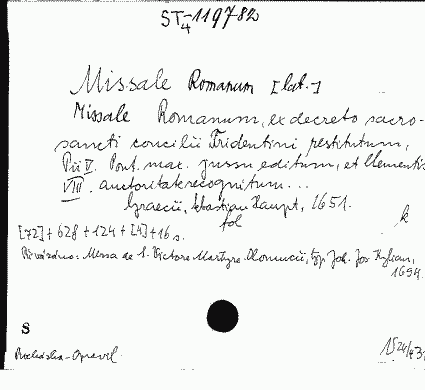 ST4-119782
Missale Romanum [lat.]
Missale Romanum, ex decreto sacro-
sancti concilii Tridentini restitutum,
Pii V. Pont. max. jussu editum, et Clementis
VIII. auctoritate recognitum...
Graecii, Sebastian Haupt, 1651.
fol k
[72] + 628 + 124 + [4] + 16 s.
Přivázáno: Messa de S. Victore Martyre. Olomucii, typ. Joh. Jos. Kylian,
1694.
S